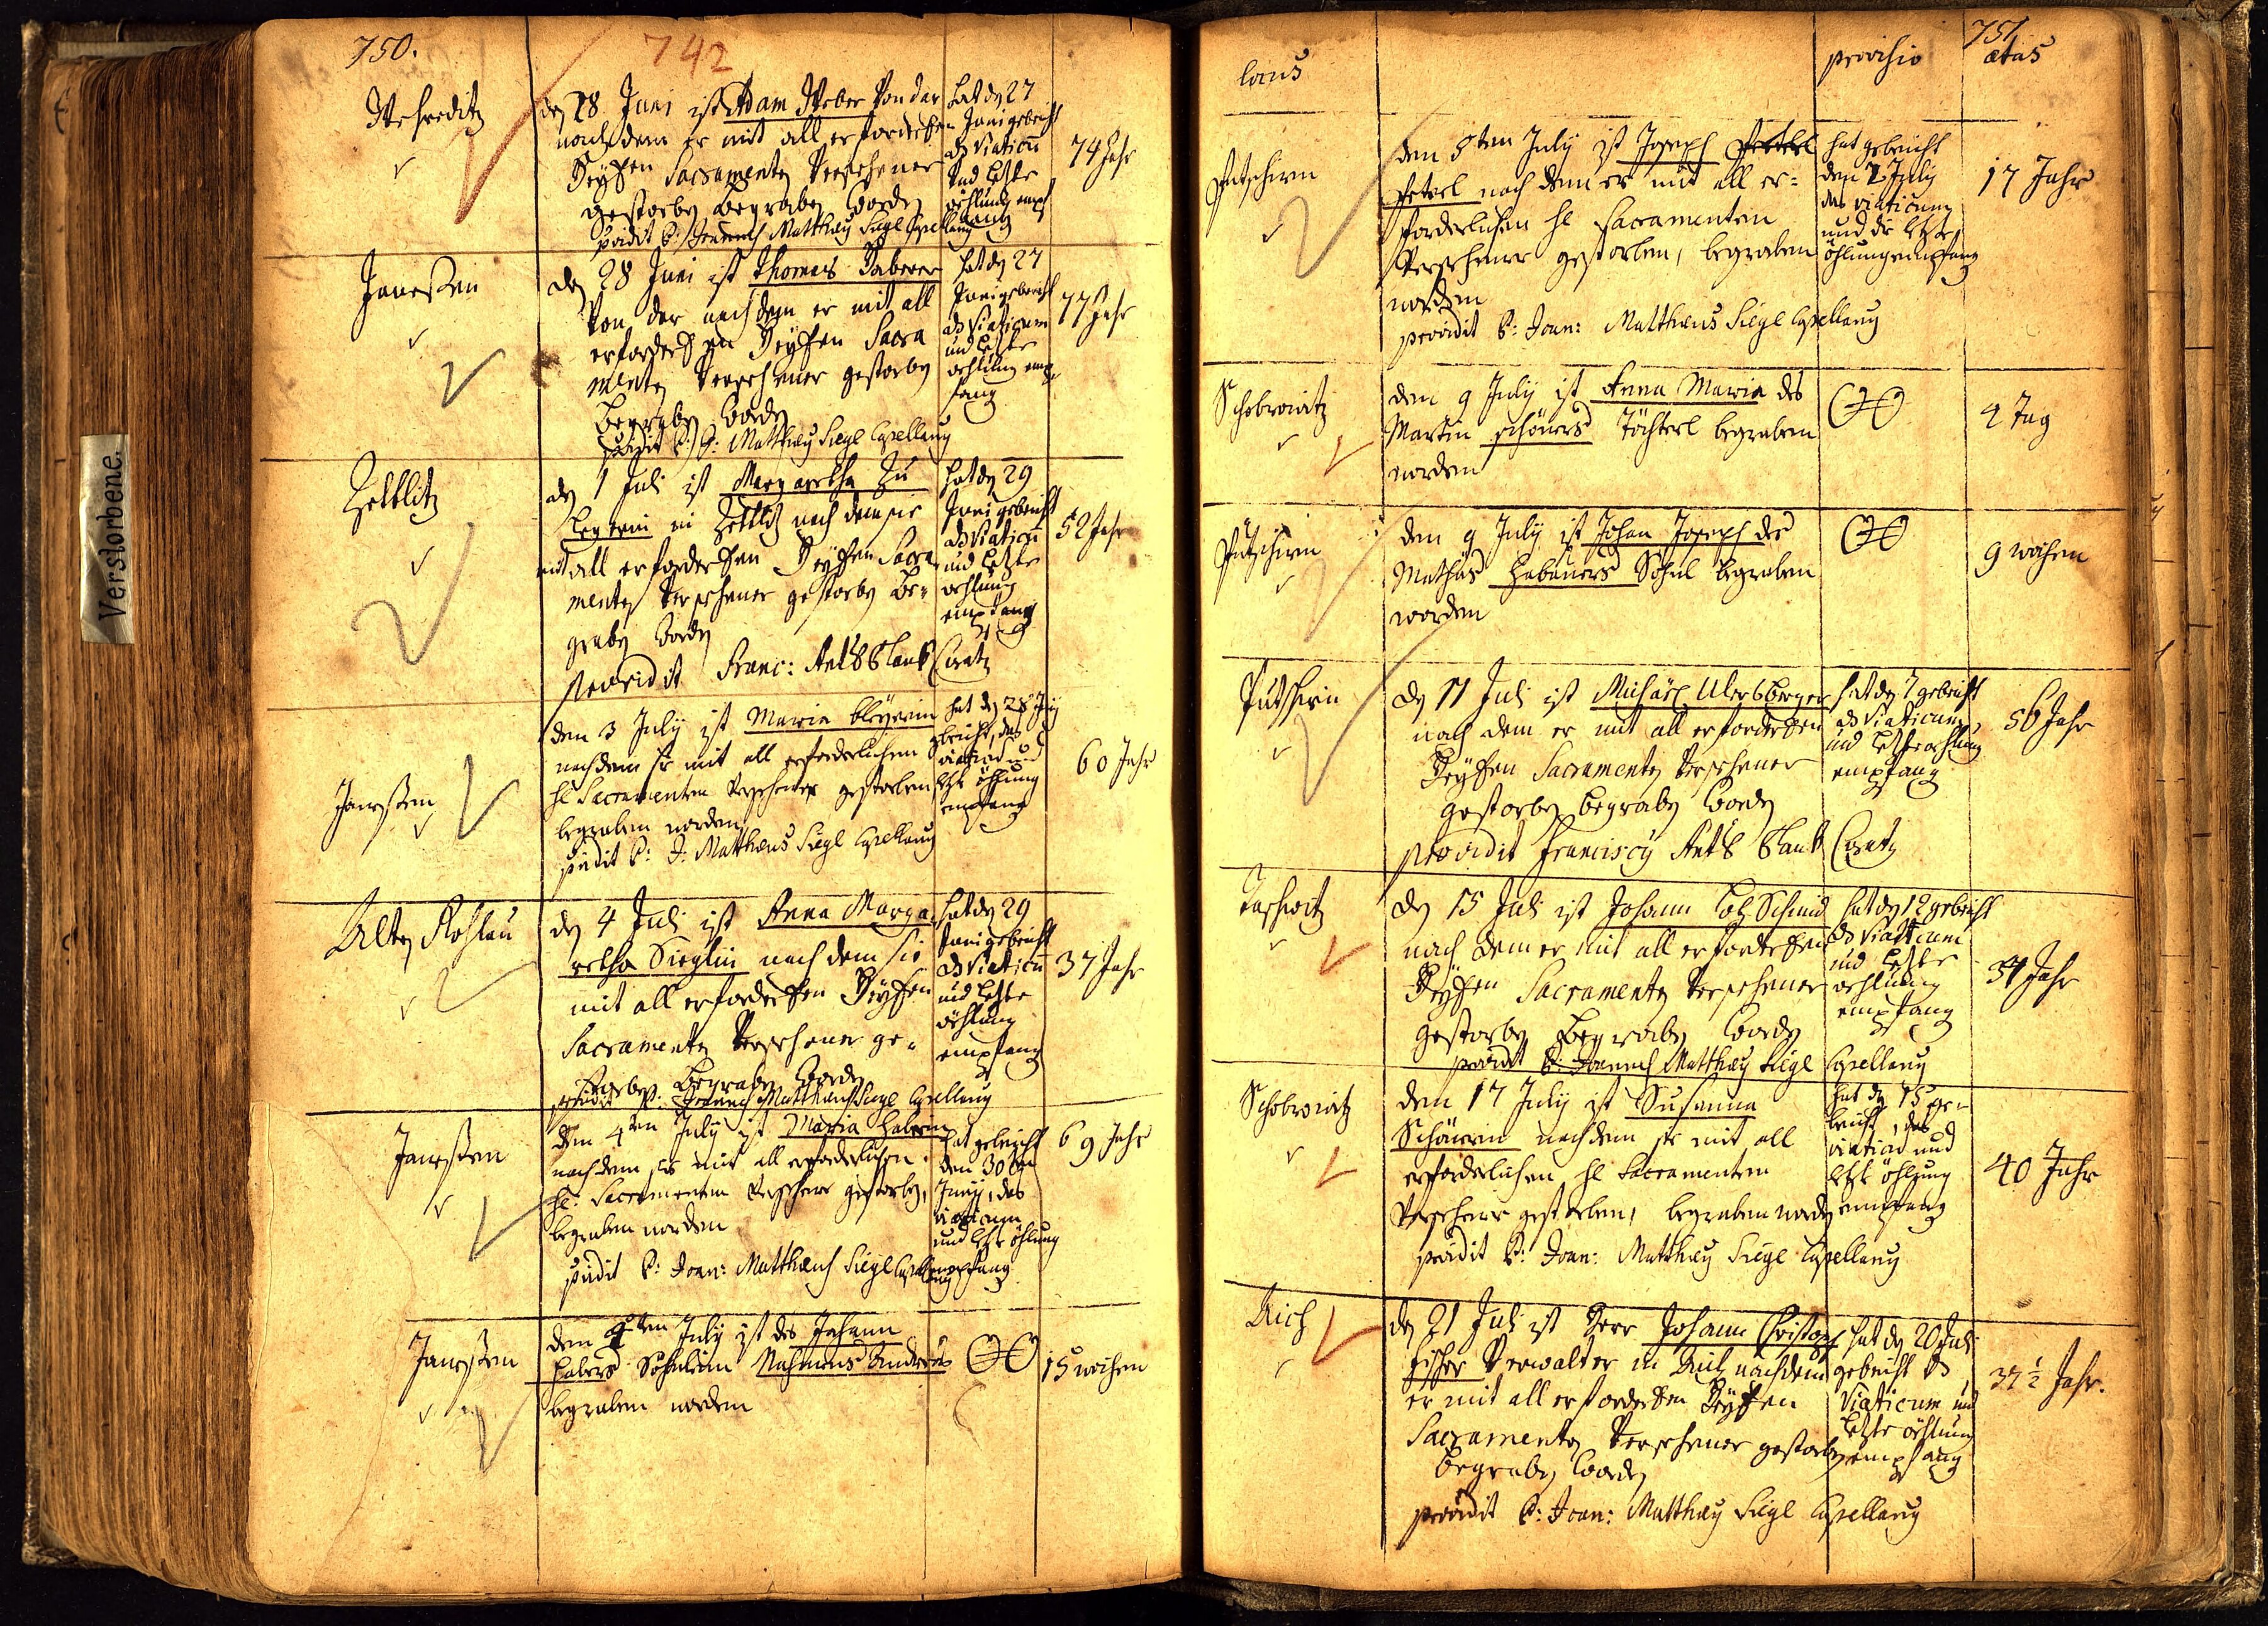 Verstorbene.
750.
742
Wehreditz
den 28 Juni ist Adam Weber Von dar
nach dem er mit all erforderlichen
Heyligen Sacramenten Versehener
gestorben begraben worden
providit P: Joannes Matthæus Siegl Capellanus
hat den 27
Juni gebeicht
das Viaticum
und letzte
oehlung empfang
74 Jahr
Janessen
den 28 Juni ist Thomas Haberer
Von dar nach dem er mit all
erforderlichen Heyligen Sacra
menten Versehener gestorben
begraben worden
providit P: J: Matthæus Siegl Capellanus
hat den 27
Juni gebeicht
das Viaticum
und letzte
oehlung emp
fang
77 Jahr
Zettlitz
den 1 Juli ist Margaretha Zu
legerin in Zettlitz nach dem sie
mit all erforderlichen Heyligen Sacra
menten Versehener gestorben be=
graben worden
providit Franc: Ant:
hat den 29
Juni gebeicht
das Viaticum
und letzte
oehlung
empfang
52 Jahr
Janessen
den 3 July ist Maria bleyerin
nachdem sie mit all erforderlichen
hl Sacramenten Versehener gestorben
begraben worden
providit P: J: Matthæus Siegl Capellanus
hat den 28
gebeicht, das
viaticum und
letzte öhlung
empfang
60 Jahr
Alten Rohlau
den 4 Juli ist Anna Marga
retha Sieglin nach dem sie
mit all erforderlichen Heyligen
Sacramenten Versehener ge=
storben begraben worden
providit P: Joannes Matthæus Siegl Capellanus
hat den 29
Juni gebeicht
das Viaticum
und letzte
oehlung
empfang
37 Jahr
Janessen
den 4ten July ist Maria Haberin
nachdem sie mit all erforderlichen
hl: Sacramenten Versehener gestorben,
begraben worden
providit P: Joan: Matthæus Siegl Capellanus
hat gebeicht
den 30ten
Juny, das
viaticum
und letzte öhlung
empfang
69 Jahr
Janessen
den 4ten July ist des Johann
Habers Söhnlein Nahmens Andreas
begraben worden
15 wochen
751
locus
provisio
ætas
Putschirn
den 8ten July ist Joseph Peterl
Peterl nach dem er mit all er=
forderlichen hl Sacramenten
Versehener gestorben, begraben
worden
providit P: Joan: Matthæus Siegl Capellanus
hat gebeicht
den 7 July
das viaticum
und die letzte
öhlung empfang
17 Jahr
Schobrowitz
den 9 July ist Anna Maria des
Martin Schöners Töchterl begraben
worden
4 Tag
Putschirn
den 9 July ist Johan Joseph des
Mathias Habauers Söhnl begraben
worden
9 wochen
Putschirn
den 11 Juli ist Michäel Ulersberger
nach dem er mit all erforderlichen
Heyligen Sacramenten Versehener
gestorben begraben worden
providit Franciscus Ant:
hat den 7 gebeicht
das Viaticum
und letzte oehlung
empfang
56 Jahr
Taschwitz
den 15 Juli ist Johann Schmid
nach dem er mit all erforderlichen
Heyligen Sacramenten Versehener
gestorben begraben worden
providit P: Joannes Matthæus Siegl Capellanus
hat den 12 gebeicht
das Viaticum
und letzte
oehlung
empfang
Jahr
Schobrowitz
den 17 July ist Susanna
Schönerin nachdem sie mit all
erforderlichen hl Sacramenten
Versehener gestorben, begraben worden
providit P: Joan: Matthæus Siegl Capellanus
hat den 15 ge=
beicht, das
viaticum und
letzte öhlung
empfang
40 Jahr
Aich
den 21 Juli ist Herr Johann Christoph
Fischer Verwalter in Aich nachdem
er mit all erforderlichen Heyligen
Sacramenten Versehener gestorben
begraben worden
providit P: Joan: Matthæus Siegl Capellanus
hat den 20 Juli
gebeicht das
Viaticum und
letzte oehlung
empfang
37 1/2 Jahr.